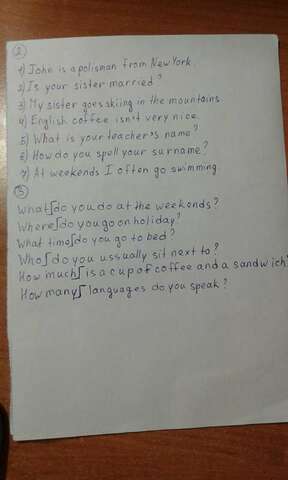 ②
1) John is a polisman from New York.
2) Is your sister married?
3) My sister goes skiing in the mountains.
4) English coffee isn't very nice.
5) What is your teacher's name?
6) How do you spell your surname?
7) At weekends I often go swimming.
③
What ʃ do you do at the weekends?
Where ʃ do you go on holiday?
What time ʃ do you go to bed?
Who ʃ do you ussually sit next to?
How much ʃ is a cup of coffee and a sandwich?
How many ʃ languages do you speak?